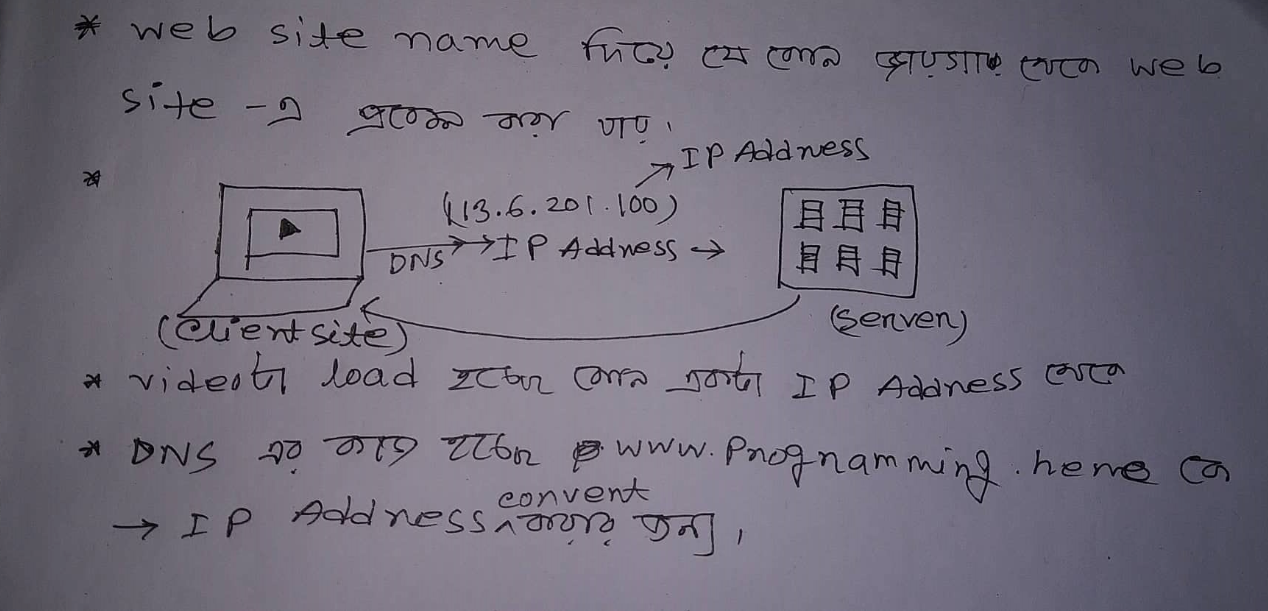 * web site name দিয়ে যে কোন জায়গায় থেকে web
site - এ প্রবেশ করা যায়।
*
IP Address
(113.6.201.100)
DNS → IP Address →
(Client site)
(Server)
* videoটা load হচ্ছে কোন একটা IP Address থেকে
* DNS এর কাজ হচ্ছে www.Programming.here কে
→ IP Address convert করার জন্য।